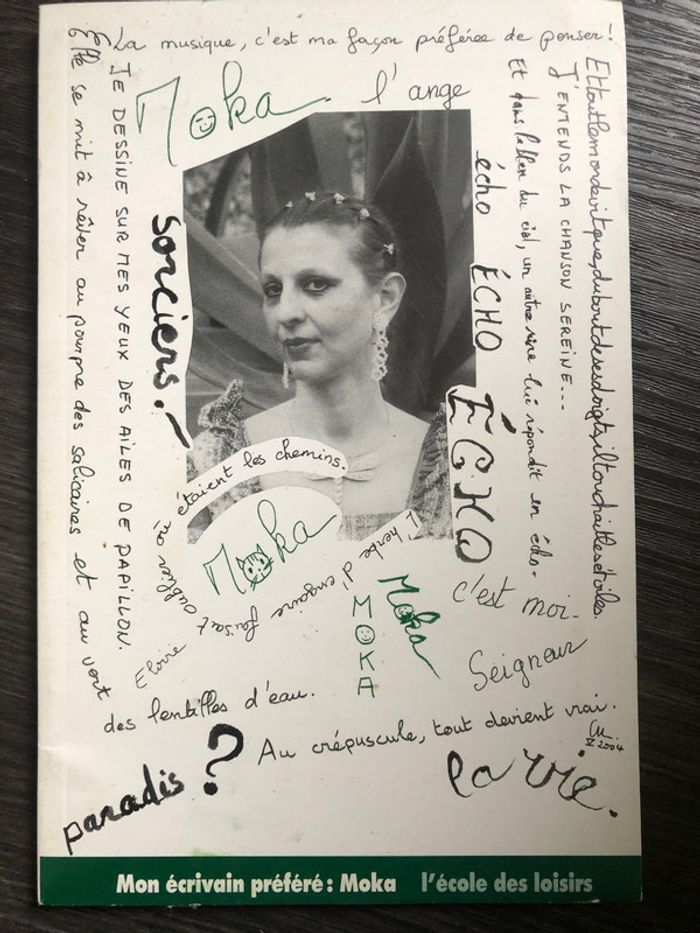 La musique, c'est ma façon préférée de penser!
Moka
l'ange
Elle se mit à rêver au pourpre des salicaires et au vert
des lentilles d'eau.
JE DESSINE SUR MES YEUX DES AILES DE PAPILLON.
sorciers!
écho
ÉCHO
ÉCHO
Et dans le bleu du ciel, un autre rire lui répondit en écho.
J'ENTENDS LA CHANSON SEREINE...
Ettoutlemondevitque,duboutdesesdoigts,iltouchaitlesétoiles.
L'herbe d'engaire faisait oublier où étaient les chemins.
Moka
Moka
MOKA
Elorie
c'est moi.
Seigneur
Au crépuscule, tout devient vrai.
V 2004
paradis?
la vie.
Mon écrivain préféré : Moka l'école des loisirs